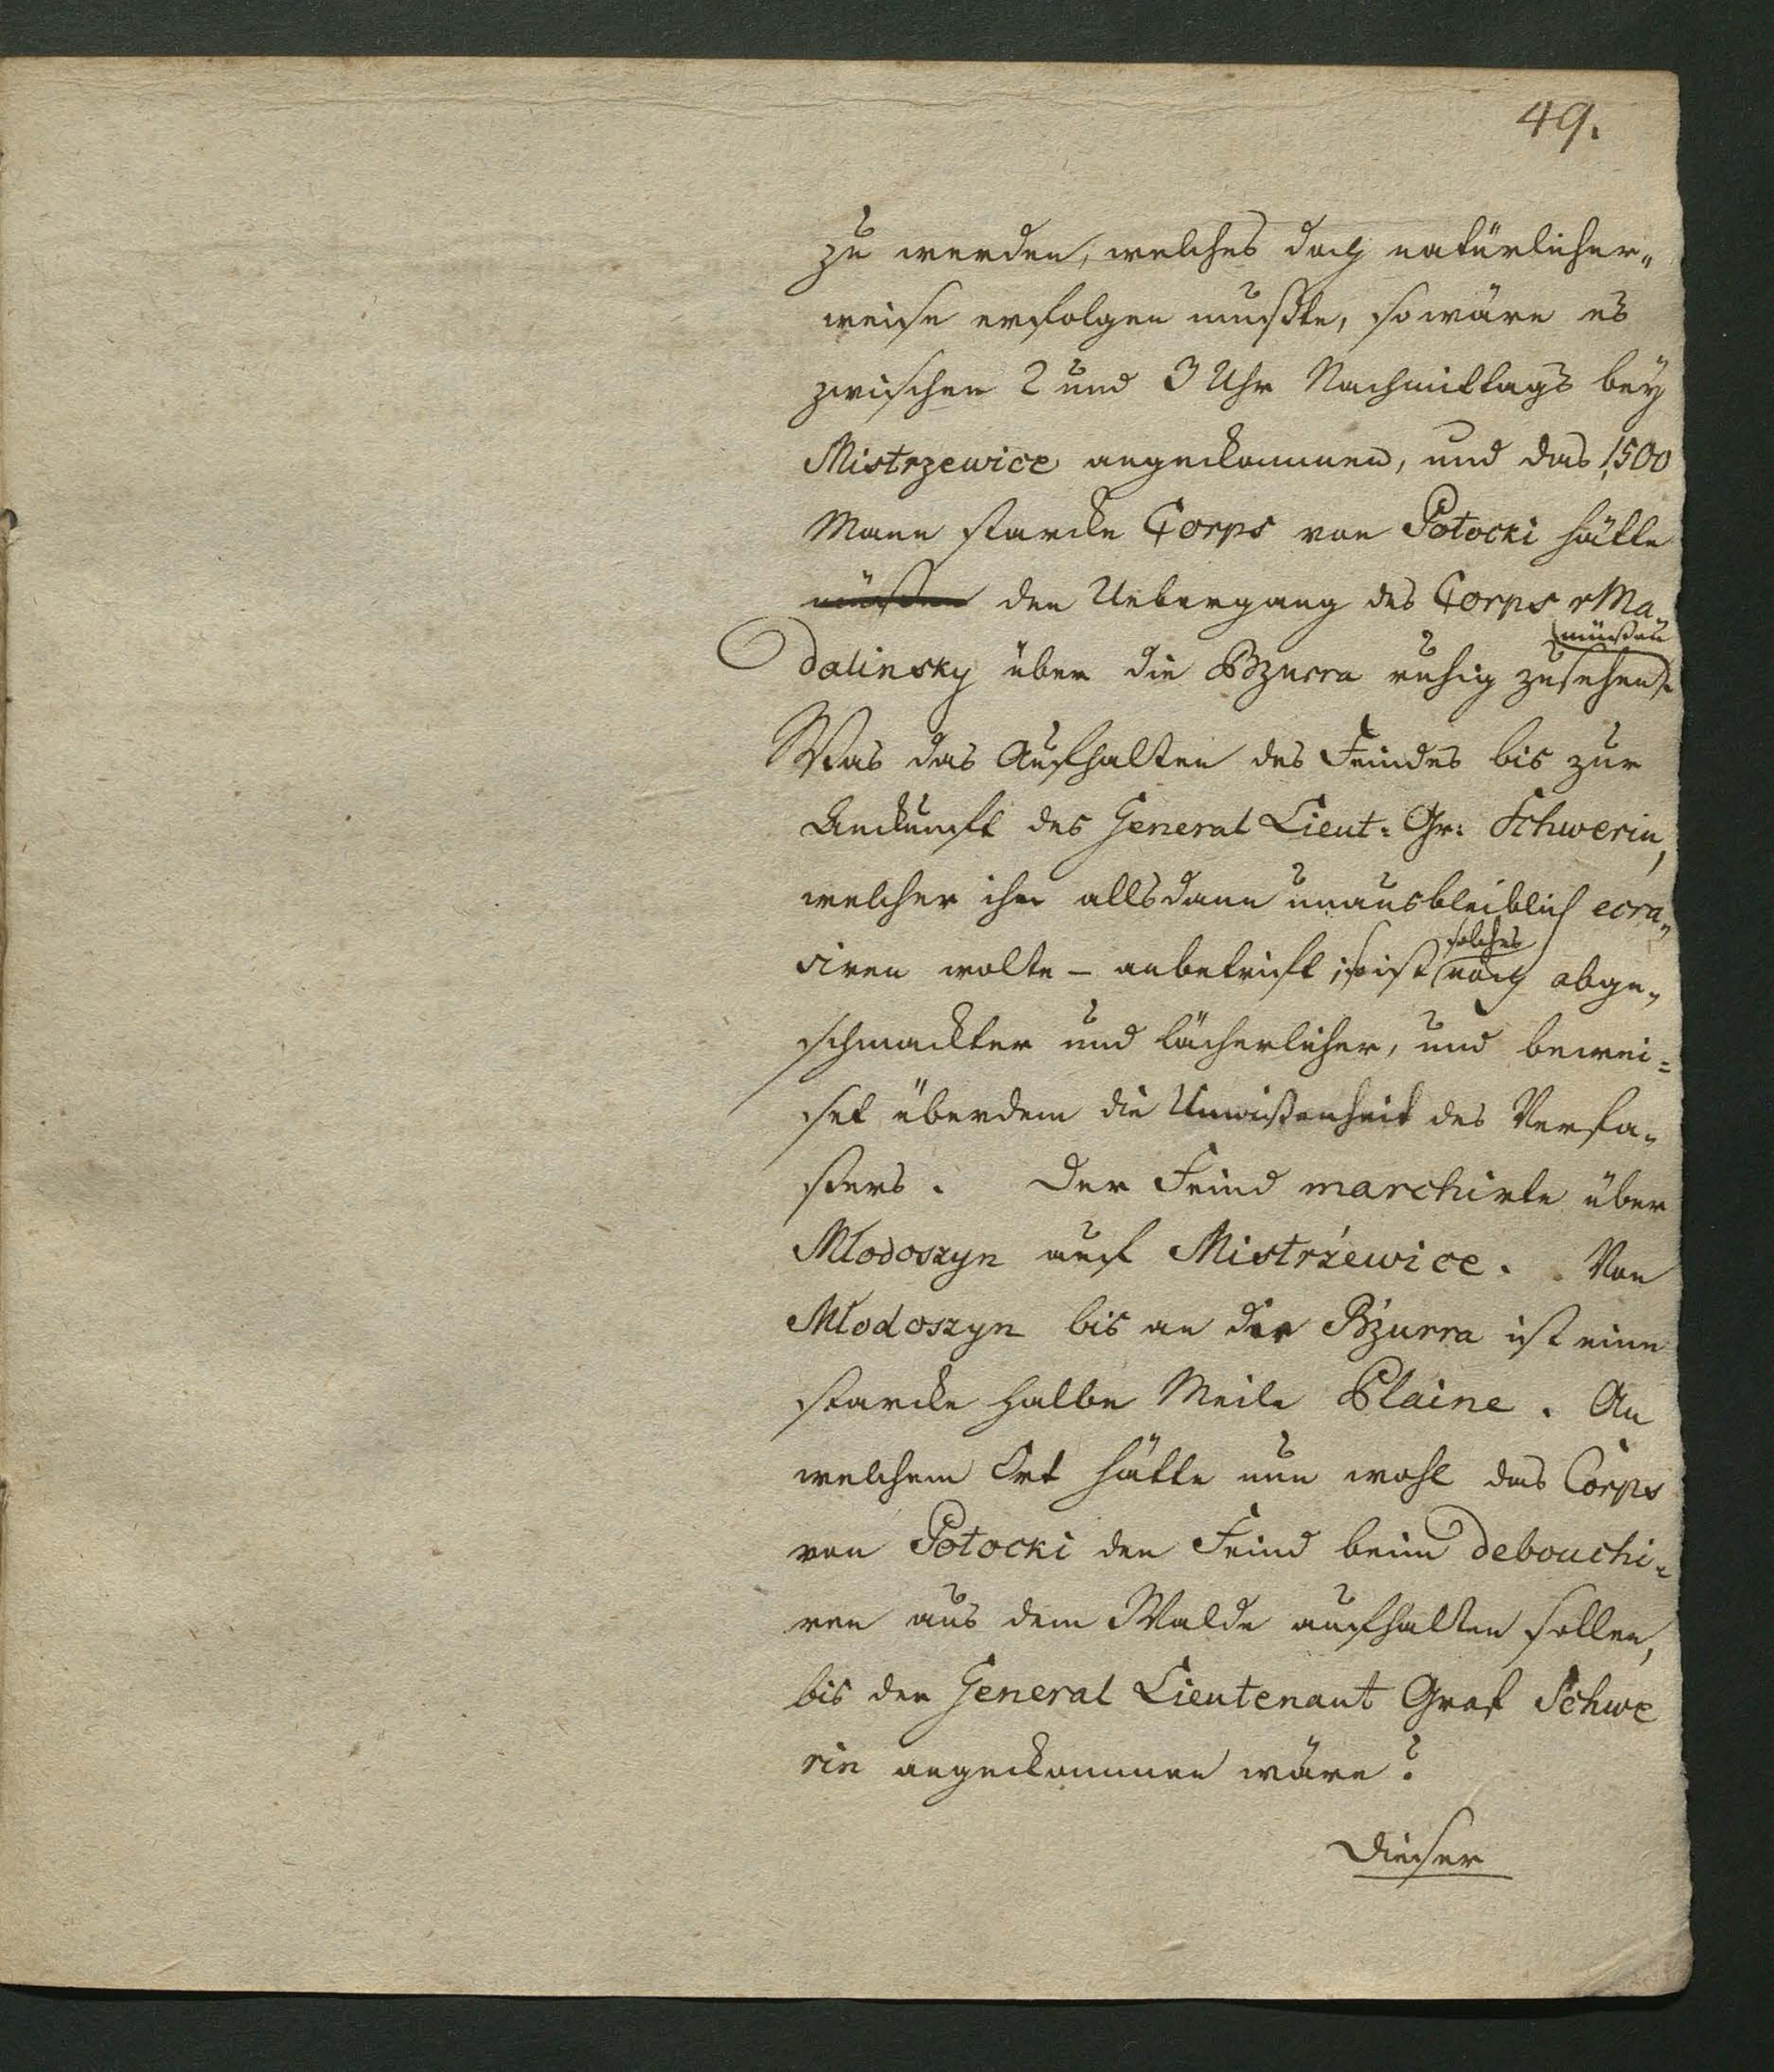 49.
zu werden, welches doch natürlicher„
weise erfolgen mußte, so wäre es
zwischen 2 und 3 Uhr Nachmittags bey
Mistrzewice angekommen, und das 1,500
Mann starcke Corps von Potocki hätte
müßen den Uebergang des Corps Ma„
müßen
dalinsky über die Bzurra ruhig zusehen.
Was das Aufhalten des Feindes bis zur
Ankunft des General Lieut: Gr: Schwerin,
welcher ihn allsdann unausbleiblich ecra„
solches
siren wolte – anbetrift; so ist noch abge„
schmackter und lächerlicher, und bewei=
set überdem die Unwißenheit des Verfa„
ßers. Der Feind marchirte über
Mlodoszyn auf Mistrżewice. Von
Mlodoszyn bis an der Bżurra ist eine
starcke halbe Meile Plaine. An
welchem Ort hätte nun wohl das Corps
von Potocki den Feind beim debouchi„
ren aus dem Walde aufhalten sollen,
bis der General Lieutenant Graf Schwe
rin angekommen wäre?
Dieser